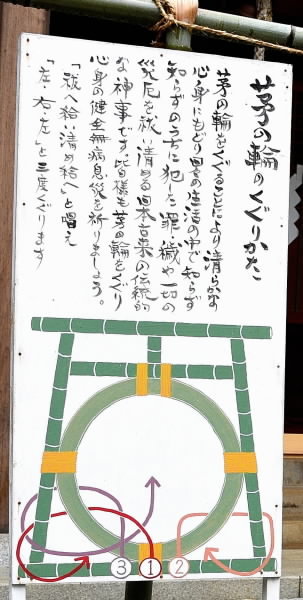 茅の輪のくぐりかた
茅の輪をくぐることにより清らかな
心身にもどり日々の生活の中で知らず
知らずのうちに犯した罪穢や一切の
災厄を祓い清める日本古来の伝統的
な神事です。皆様も茅の輪をくぐり
心身の健全無病息災を祈りましょう。
「祓へ給い清め給へ」と唱え
「左・右・左」と三度くぐります
③ ① ②